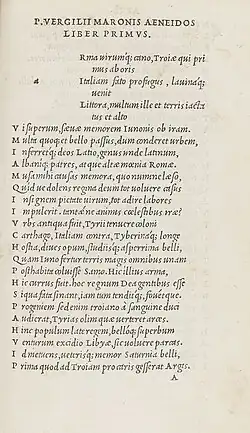 P. VERGILII MARONIS AENEIDOS
LIBER PRIMVS.
Rma uirumq; cano, Troiæ qui pri
mus ab oris
a Italiam fato profugus, lauinaq;
uenit
Littora, multum ille et terris iacta
tus et alto
V i superum, sæuæ memorem Iunonis ob iram.
M ulta quoq; et bello passus, dum conderet urbem,
I nferretq; deos Latio, genus unde latinum,
A lbaniq; patres, atque altæ mœnia Romæ.
M usa mihi causas memora, quo numine læso,
Q uid ue dolens regina deum tot uoluere casus
I nsignem pietate uirum, tot adire labores
I mpulerit. tantæ ne animis cœlestibus iræ?
V rbs antiqua fuit, Tyrii tenuere coloni
C arthago, Italiam contra, Tyberinaq; longe
H ostia, diues opum, studiisq; asperrima belli,
Q uam Iuno fertur terris magis omnibus unam
P osthabita coluisse Samo. Hic illius arma,
H ic currus fuit. hoc regnum Dea gentibus esse
S i qua fata sinant, iam tum tenditq;, fouetque.
P rogeniem sed enim troiano à sanguine duci
A udierat, Tyrias olim quæ uerteret arces.
H inc populum late regem, belloq; superbum
V enturum excidio Libyæ, sic uoluere parcas.
I d metuens, ueterisq; memor Saturnia belli,
P rima quod ad Troiam pro caris gesserat Argis.
A